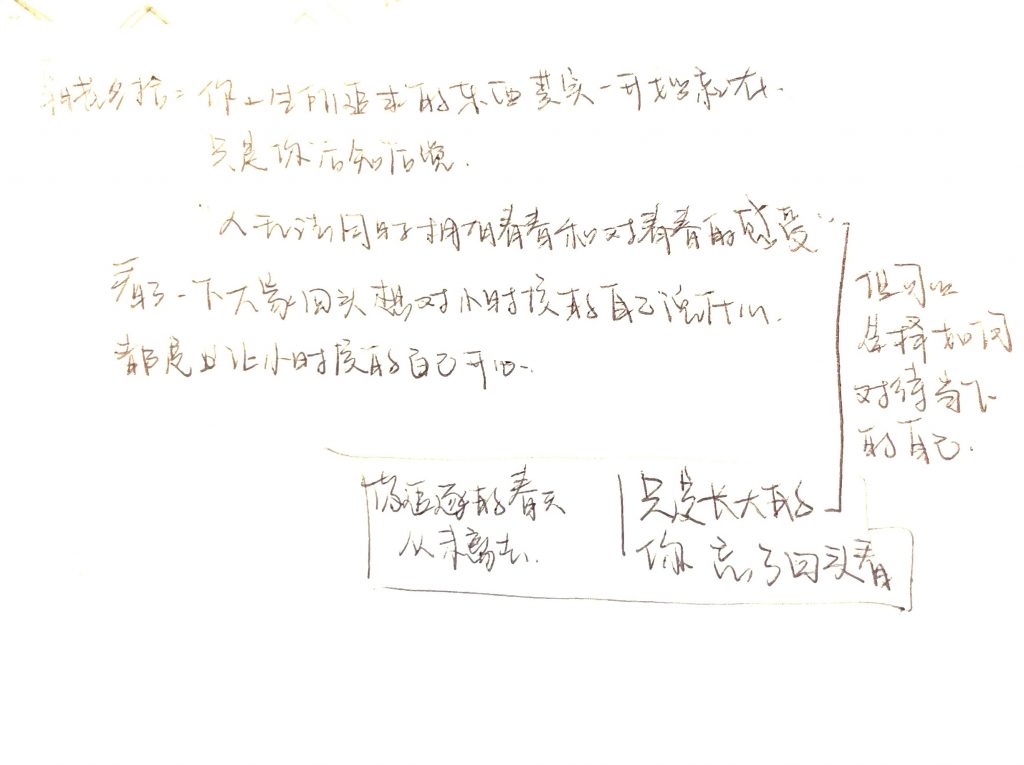 朝花夕拾：你一生所追求的东西其实一开始就在.
只是你后知后觉.
"人无法同时拥有青春和对青春的感受"
看了一下大家回头想对小时候的自己说什么.
都是让小时候的自己开心.
但可以
选择如何
对待当下
的自己.
你追逐的春天
从未离去.
只是长大的
你忘了回头看